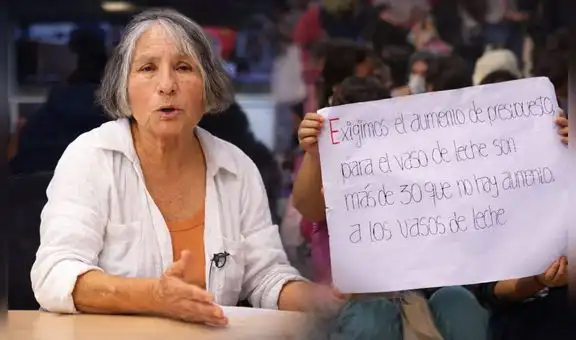 Exigimos el aumento de presupuesto
para el vaso de leche son
más de 30 que no hay aumento.
a los vasos de leche